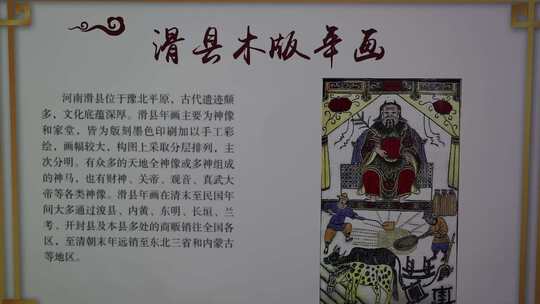 滑县木版年画
河南滑县位于豫北平原，古代遗迹颇
多，文化底蕴深厚。滑县年画主要为神像
和家堂，皆为版刻墨色印刷加以手工彩
绘，画幅较大，构图上采取分层排列，主
次分明。有众多的天地全神像或多神组成
的神马，也有财神、关帝、观音、真武大
帝等各类神像。滑县年画在清末至民国年
间大多通过浚县、内黄、东明、长垣、兰
考、开封县及本县多处的商贩销往全国各
区，至清朝末年远销至东北三省和内蒙古
等地区。